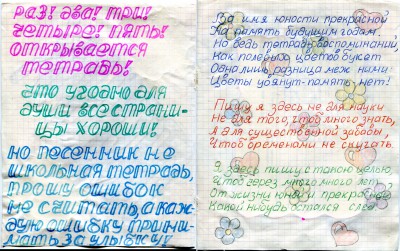 РАЗ! ДВА! ТРИ!
ЧЕТЫРЕ! ПЯТЬ!
ОТКРЫВАЕТСЯ
ТЕТРАДЬ!
ЧТО УГОДНО ДЛЯ
ДУШИ ВСЕ СТРАНИ-
ЦЫ ХОРОШИ!
НО ПЕСЕННИК НЕ
ШКОЛЬНАЯ ТЕТРАДЬ,
ПРОШУ ОШИБОК
НЕ СЧИТАТЬ, А КАЖ-
ДУЮ ОШИБКУ ПРИНИ-
МАТЬ ЗА УЛЫБКУ!
Во имя юности прекрасной
На память будущим годам.
Но ведь тетрадь воспоминаний,
Как полевых цветов букет
Одна лишь разница меж ними:
Цветы увянут-память нет!
Пишу я здесь не для науки
Не для того, чтоб много знать,
А для существенной забавы,
Чтоб временами не скучать.
Я здесь пишу с такою целью,
Чтоб через много много лет
От жизни юной и прекрасной
Какой нибудь остался след.